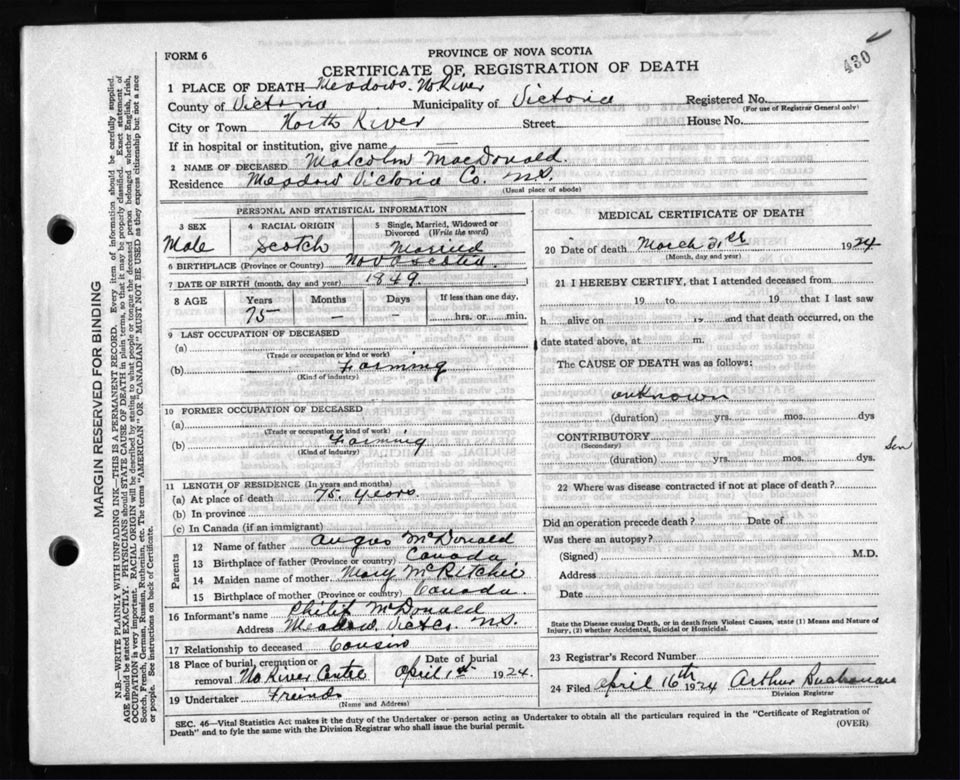 430
FORM 6
PROVINCE OF NOVA SCOTIA
CERTIFICATE OF REGISTRATION OF DEATH
1 PLACE OF DEATH Meadows. No River
County of Victoria Municipality of Victoria Registered No.
(For use of Registrar General only)
City or Town North River Street House No.
If in hospital or institution, give name —
2 NAME OF DECEASED Malcolm MacDonald.
Residence Meadow Victoria Co. N.S.
(Usual place of abode)
PERSONAL AND STATISTICAL INFORMATION
3 SEX 4 RACIAL ORIGIN 5 Single, Married, Widowed or Divorced (Write the word)
Male Scotch Married
6 BIRTHPLACE (Province or Country) Nova Scotia.
7 DATE OF BIRTH (month, day and year) 1849. 1
8 AGE Years Months Days If less than one day.
75 — — hrs. or min.
9 LAST OCCUPATION OF DECEASED
(a)
(Trade or occupation or kind or work)
(b) Farming
(Kind of industry)
10 FORMER OCCUPATION OF DECEASED
(a)
(Trade or occupation or kind of work)
(b) Farming
(Kind of industry)
11 LENGTH OF RESIDENCE (In years and months)
(a) At place of death 75. years.
(b) In province
(c) In Canada (if an immigrant)
Parents
12 Name of father Angus McDonald
13 Birthplace of father (Province or country) Canada
14 Maiden name of mother Mary McRitchie
15 Birthplace of mother (Province or country) Canada.
16 Informant's name Philip McDonald
Address Meadow. Vict Co. N.S.
17 Relationship to deceased Cousin
18 Place of burial, cremation or removal No River Centre Date of burial April 1st 1924.
19 Undertaker Freinds
(Name and Address)
MEDICAL CERTIFICATE OF DEATH
20 Date of death March 31st 1924
(Month, day and year)
21 I HEREBY CERTIFY, that I attended deceased from
19 to 19 that I last saw
h alive on 19 and that death occurred, on the
date stated above, at m.
The CAUSE OF DEATH was as follows:
unknown
(duration) yrs. mos. dys
CONTRIBUTORY
(Secondary)
(duration) yrs. mos. dys.
Sen
22 Where was disease contracted if not at place of death?
Did an operation precede death? Date of
Was there an autopsy?
(Signed) M.D.
Address
Date
State the Disease causing Death, or in death from Violent Causes, state (1) Means and Nature of Injury, (2) whether Accidental, Suicidal or Homicidal.
23 Registrar's Record Number
24 Filed April 16th 1924 Arthur Buchanan
Division Registrar
SEC. 46—Vital Statistics Act makes it the duty of the Undertaker or person acting as Undertaker to obtain all the particulars required in the "Certificate of Registration of
Death" and to fyle the same with the Division Registrar who shall issue the burial permit. (OVER)
MARGIN RESERVED FOR BINDING
N.B.—WRITE PLAINLY WITH UNFADING INK—THIS IS A PERMANENT RECORD. Every item of information should be carefully supplied.
AGE should be stated EXACTLY. PHYSICIANS should STATE CAUSE OF DEATH in plain terms, so that it may be properly classified. Exact statement of
OCCUPATION is very important. RACIAL ORIGIN will be described by stating to what people or tongue the deceased person belonged whether English, Irish,
Scotch, French, German, Russian, Ruthenian, etc. The terms "AMERICAN" OR "CANADIAN" MUST NOT BE USED as they express citizenship but not a race
or people. See instructions on back of Certificate.